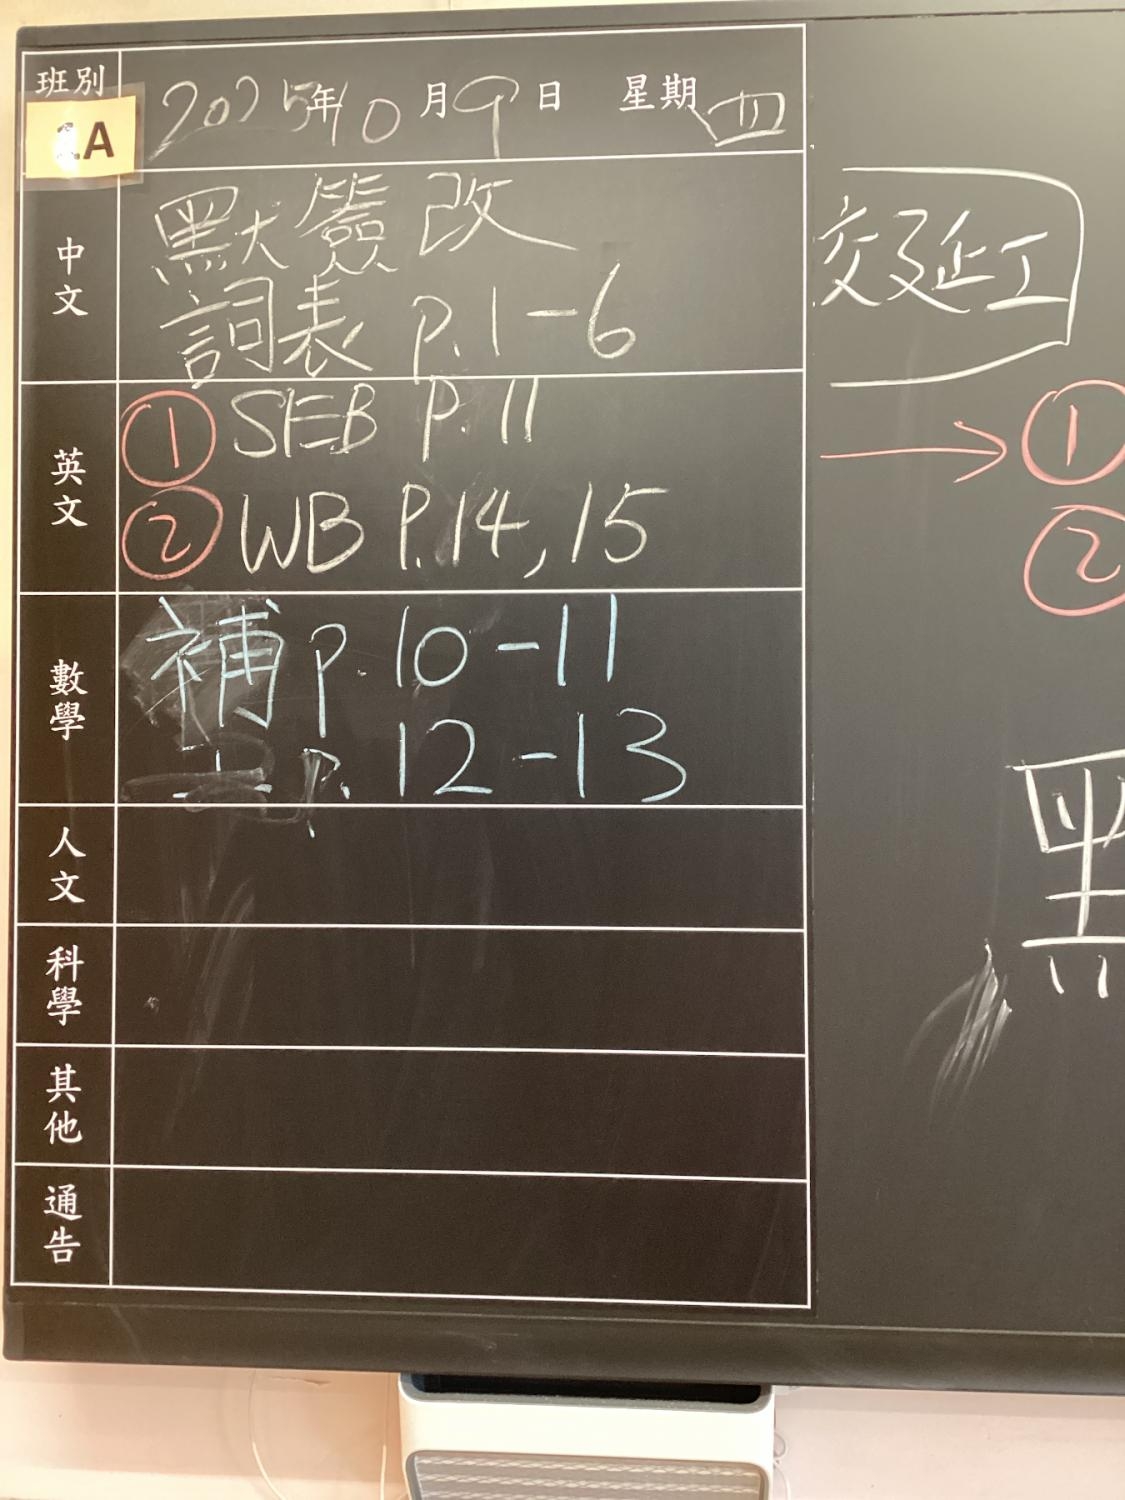 班別 2025年10月9日 星期四
1A
中文
默簽改
詞表 p.1-6
英文
① SEB P.11
② WB P.14, 15
數學
補 p. 10-11
P. 12-13
人文
科學
其他
通告
交延工
→ ①
②